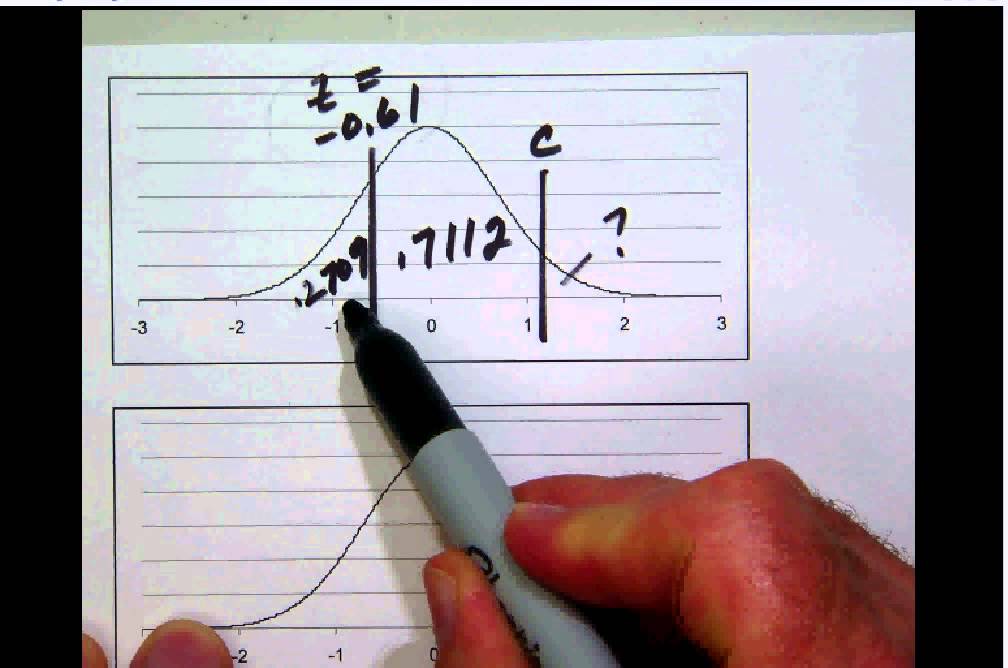 z =
-0.61
c
?
.2709 .7112
-3 -2 -1 0 1 2 3
-2 -1 0